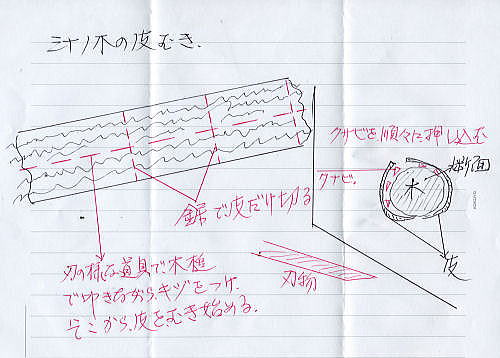 ミナノ木の皮むき.
クサビを順々に押し込む
クサビ.
断面
木
皮
鋸で皮だけ切る
刃物
刃の様な道具で木槌
で叩きながら、キヅをつけ、
そこから、皮をむき始める.